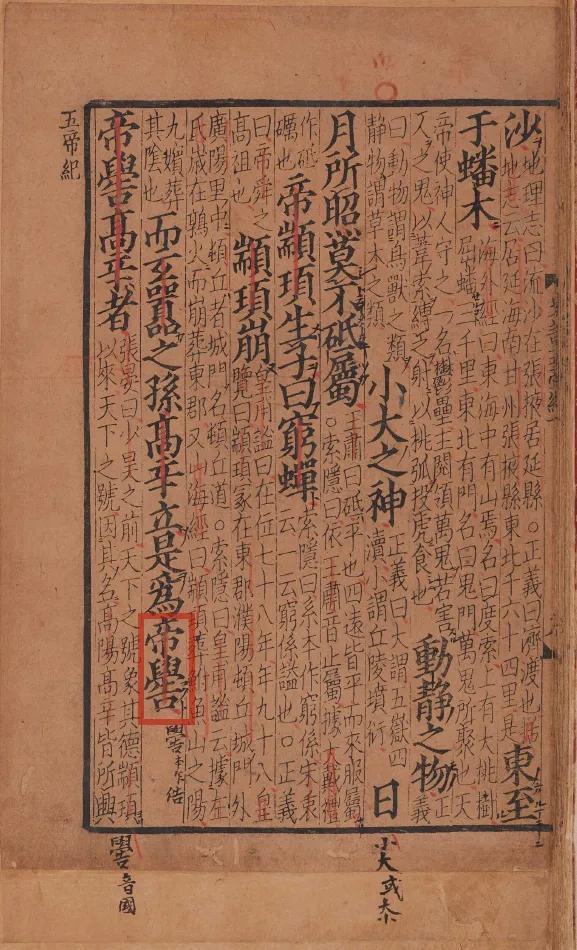 沙地理志曰流沙在張掖居延縣。正義曰濟渡也括
地志云居延海南甘州張掖縣東北千六十四里是東至
于蟠木海外經曰東海中有山焉名曰度索上有大桃樹
屈蟠三千里東北有門名曰鬼門萬鬼所聚也天
帝使神人守之一名鬱壘主閱領萬鬼若害
人之鬼以葦索縛之射以桃弧投虎食也動靜之物正義
曰動物謂鳥獸之類
靜物謂草木之類小大之神正義曰大謂五嶽四
瀆小謂丘陵墳衍日
月所照莫不砥屬王肅曰砥平也四遠皆平而來服屬
。索隱曰依王肅音止屬據大戴禮
作砥
礪也帝顓頊生子曰窮蟬索隱曰系本作窮係宋衷
云一云窮係謚也。正義
曰帝舜之
高祖也顓頊崩皇甫謐曰在位七十八年年九十八皇
覽曰顓頊冢在東郡濮陽頓丘城門外
廣陽里中頓丘者城門名頓丘道。索隱曰皇甫謐云據左
氏歲在鶉火而崩葬東郡又山海經曰顓頊葬鮒魚山之陽
九嬪葬
其陰也而玄囂之孫高辛立是為帝嚳
嚳本作俈
帝嚳高辛者張晏曰少昊之前天下之號象其德顓頊
以來天下之號因其名高陽高辛皆所興
五帝紀
小大或大小
嚳音國